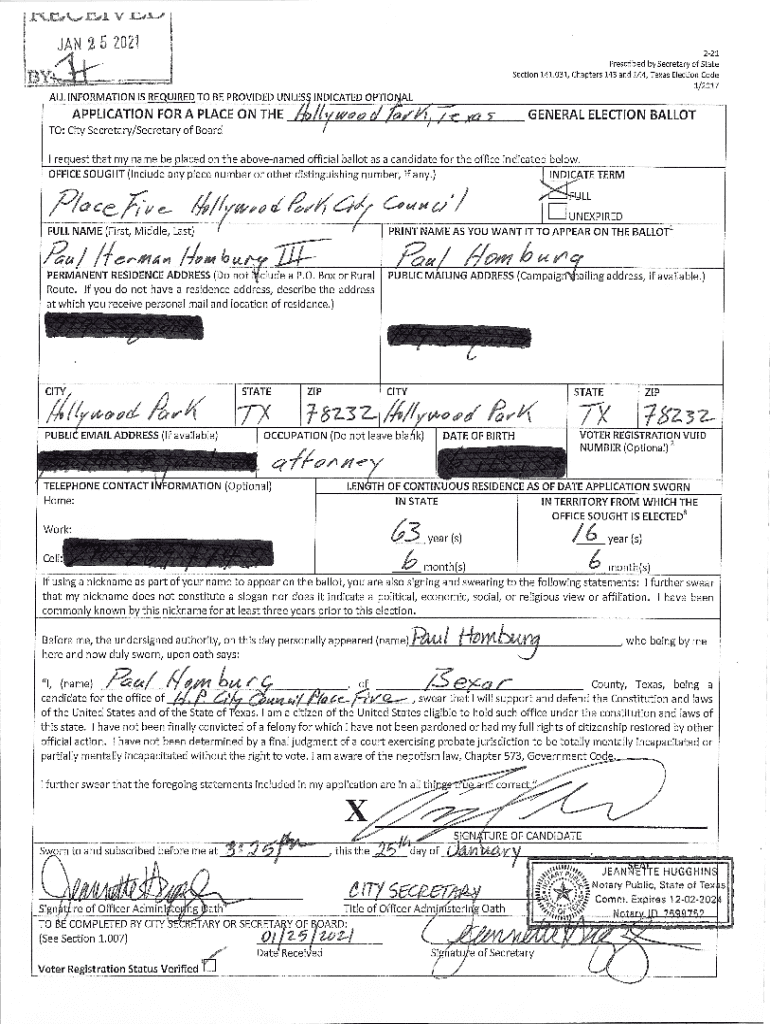 RECEIVED
JAN 25 2021
BY:
2-21
Prescribed by Secretary of State
Section 141.031, Chapters 143 and 144, Texas Election Code
1/2017
ALL INFORMATION IS REQUIRED TO BE PROVIDED UNLESS INDICATED OPTIONAL
APPLICATION FOR A PLACE ON THE Hollywood Park, Texas GENERAL ELECTION BALLOT
TO: City Secretary/Secretary of Board
I request that my name be placed on the above-named official ballot as a candidate for the office indicated below.
OFFICE SOUGHT (Include any place number or other distinguishing number, if any.) INDICATE TERM
Place Five Hollywood Park City Council
FULL
UNEXPIRED
FULL NAME (First, Middle, Last) PRINT NAME AS YOU WANT IT TO APPEAR ON THE BALLOT
Paul Herman Homburg III Paul Homburg
PERMANENT RESIDENCE ADDRESS (Do not include a P.O. Box or Rural PUBLIC MAILING ADDRESS (Campaign mailing address, if available.)
Route. If you do not have a residence address, describe the address
at which you receive personal mail and location of residence.)
CITY STATE ZIP CITY STATE ZIP
Hollywood Park TX 78232 Hollywood Park TX 78232
PUBLIC EMAIL ADDRESS (If available) OCCUPATION (Do not leave blank) DATE OF BIRTH VOTER REGISTRATION VUID
NUMBER (Optional)
attorney
TELEPHONE CONTACT INFORMATION (Optional) LENGTH OF CONTINUOUS RESIDENCE AS OF DATE APPLICATION SWORN
Home: IN STATE IN TERRITORY FROM WHICH THE
OFFICE SOUGHT IS ELECTED
Work: 63 year(s) 16 year(s)
Cell: 6 month(s) 6 month(s)
If using a nickname as part of your name to appear on the ballot, you are also signing and swearing to the following statements: I further swear
that my nickname does not constitute a slogan nor does it indicate a political, economic, social, or religious view or affiliation. I have been
commonly known by this nickname for at least three years prior to this election.
Before me, the undersigned authority, on this day personally appeared (name) Paul Homburg, who being by me
here and now duly sworn, upon oath says:
"I, (name) Paul Homburg, of Bexar County, Texas, being a
candidate for the office of H.P. City Council Place Five, swear that I will support and defend the Constitution and laws
of the United States and of the State of Texas. I am a citizen of the United States eligible to hold such office under the constitution and laws of
this state. I have not been finally convicted of a felony for which I have not been pardoned or had my full rights of citizenship restored by other
official action. I have not been determined by a final judgment of a court exercising probate jurisdiction to be totally mentally incapacitated or
partially mentally incapacitated without the right to vote. I am aware of the nepotism law, Chapter 573, Government Code.
I further swear that the foregoing statements included in my application are in all things true and correct."
X
SIGNATURE OF CANDIDATE
Sworn to and subscribed before me at 3:25 pm, this the 25th day of January,
SEAL
JEANNETTE HUGGHINS
Notary Public, State of Texas
Comm. Expires 12-02-2024
Notary ID 7599752
CITY SECRETARY
Signature of Officer Administering Oath Title of Officer Administering Oath
TO BE COMPLETED BY CITY SECRETARY OR SECRETARY OF BOARD:
(See Section 1.007) 01/25/2021
Date Received Signature of Secretary
Voter Registration Status Verified